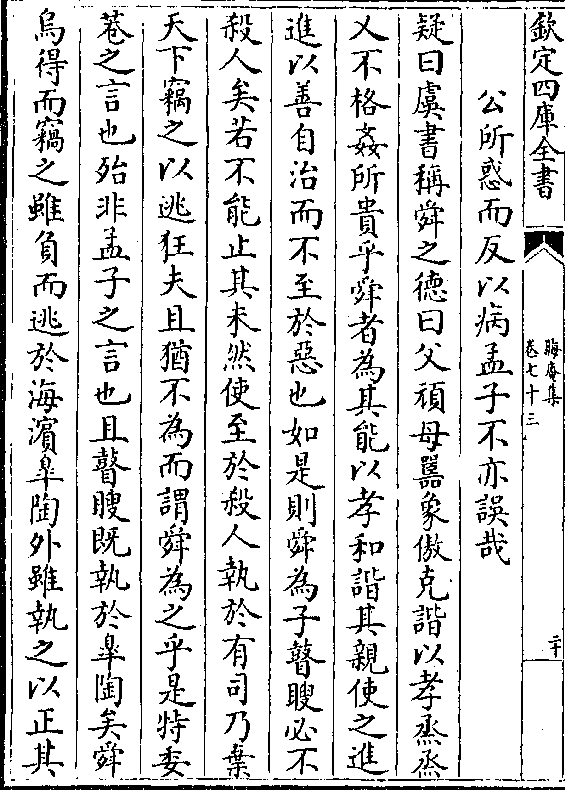 欽定四庫全書
晦庵集
卷七十三
二十
公所惑而反以病孟子不亦誤哉
疑曰虞書稱舜之德曰父頑母嚚象傲克諧以孝烝烝
乂不格姦所貴乎舜者為其能以孝和諧其親使之進
進以善自治而不至於惡也如是則舜為子瞽瞍必不
殺人矣若不能止其未然使至於殺人執於有司乃棄
天下竊之以逃狂夫且猶不為而謂舜為之乎是特委
巷之言也殆非孟子之言也且瞽瞍既執於臯陶矣舜
烏得而竊之雖負而逃於海濱臯陶外雖執之以正其